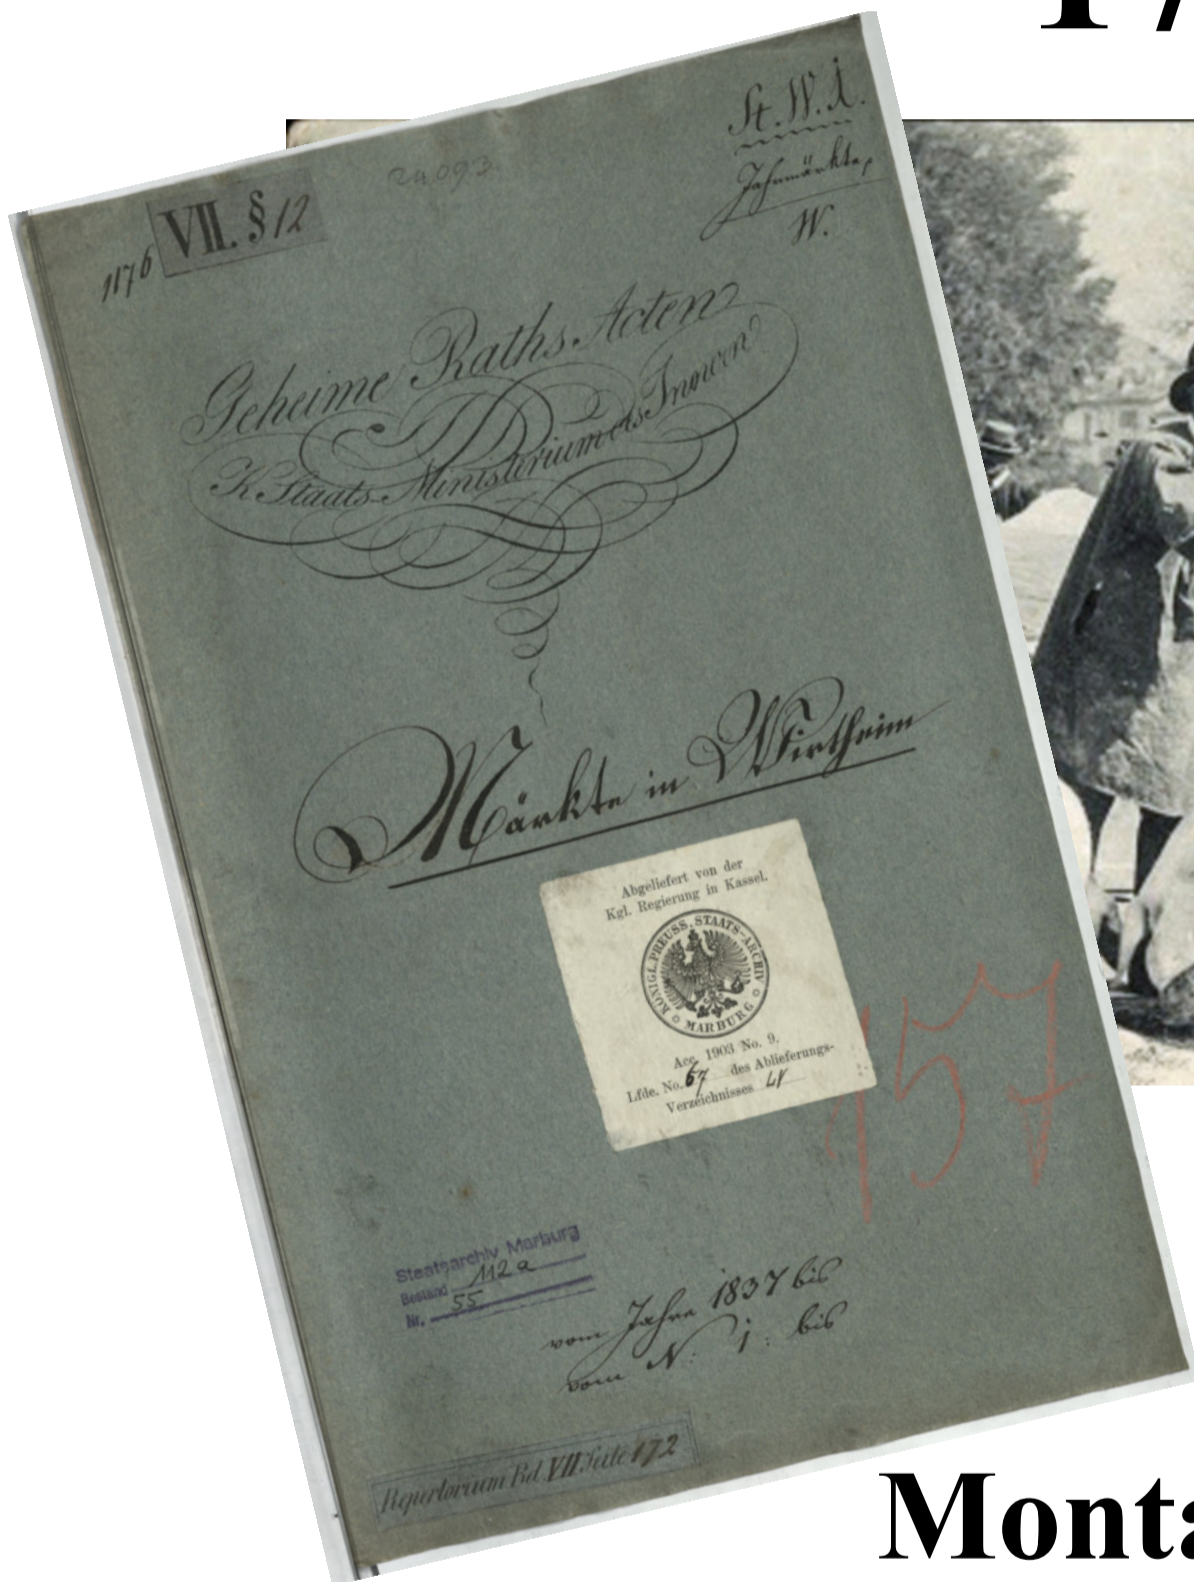 St. W. I.
Jahrmärkte,
W.
24.093.
1176 VII. § 12
Geheime Raths Acten
K. Staats-Ministerium des Innern
Märkte in Wirtheim
Abgeliefert von der
Kgl. Regierung in Kassel.
KÖNIGL. PREUSS. STAATS-ARCHIV
MARBURG
Acc. 1903 No. 9.
Lfde. No. 67 des Ablieferungs-
Verzeichnisses
157
Staatsarchiv Marburg
Bestand 112 a
Nr. 55
vom Jahre 1837 bis
vom N. 1. bis
Repertorium Bd. VII Seite 172
Monta